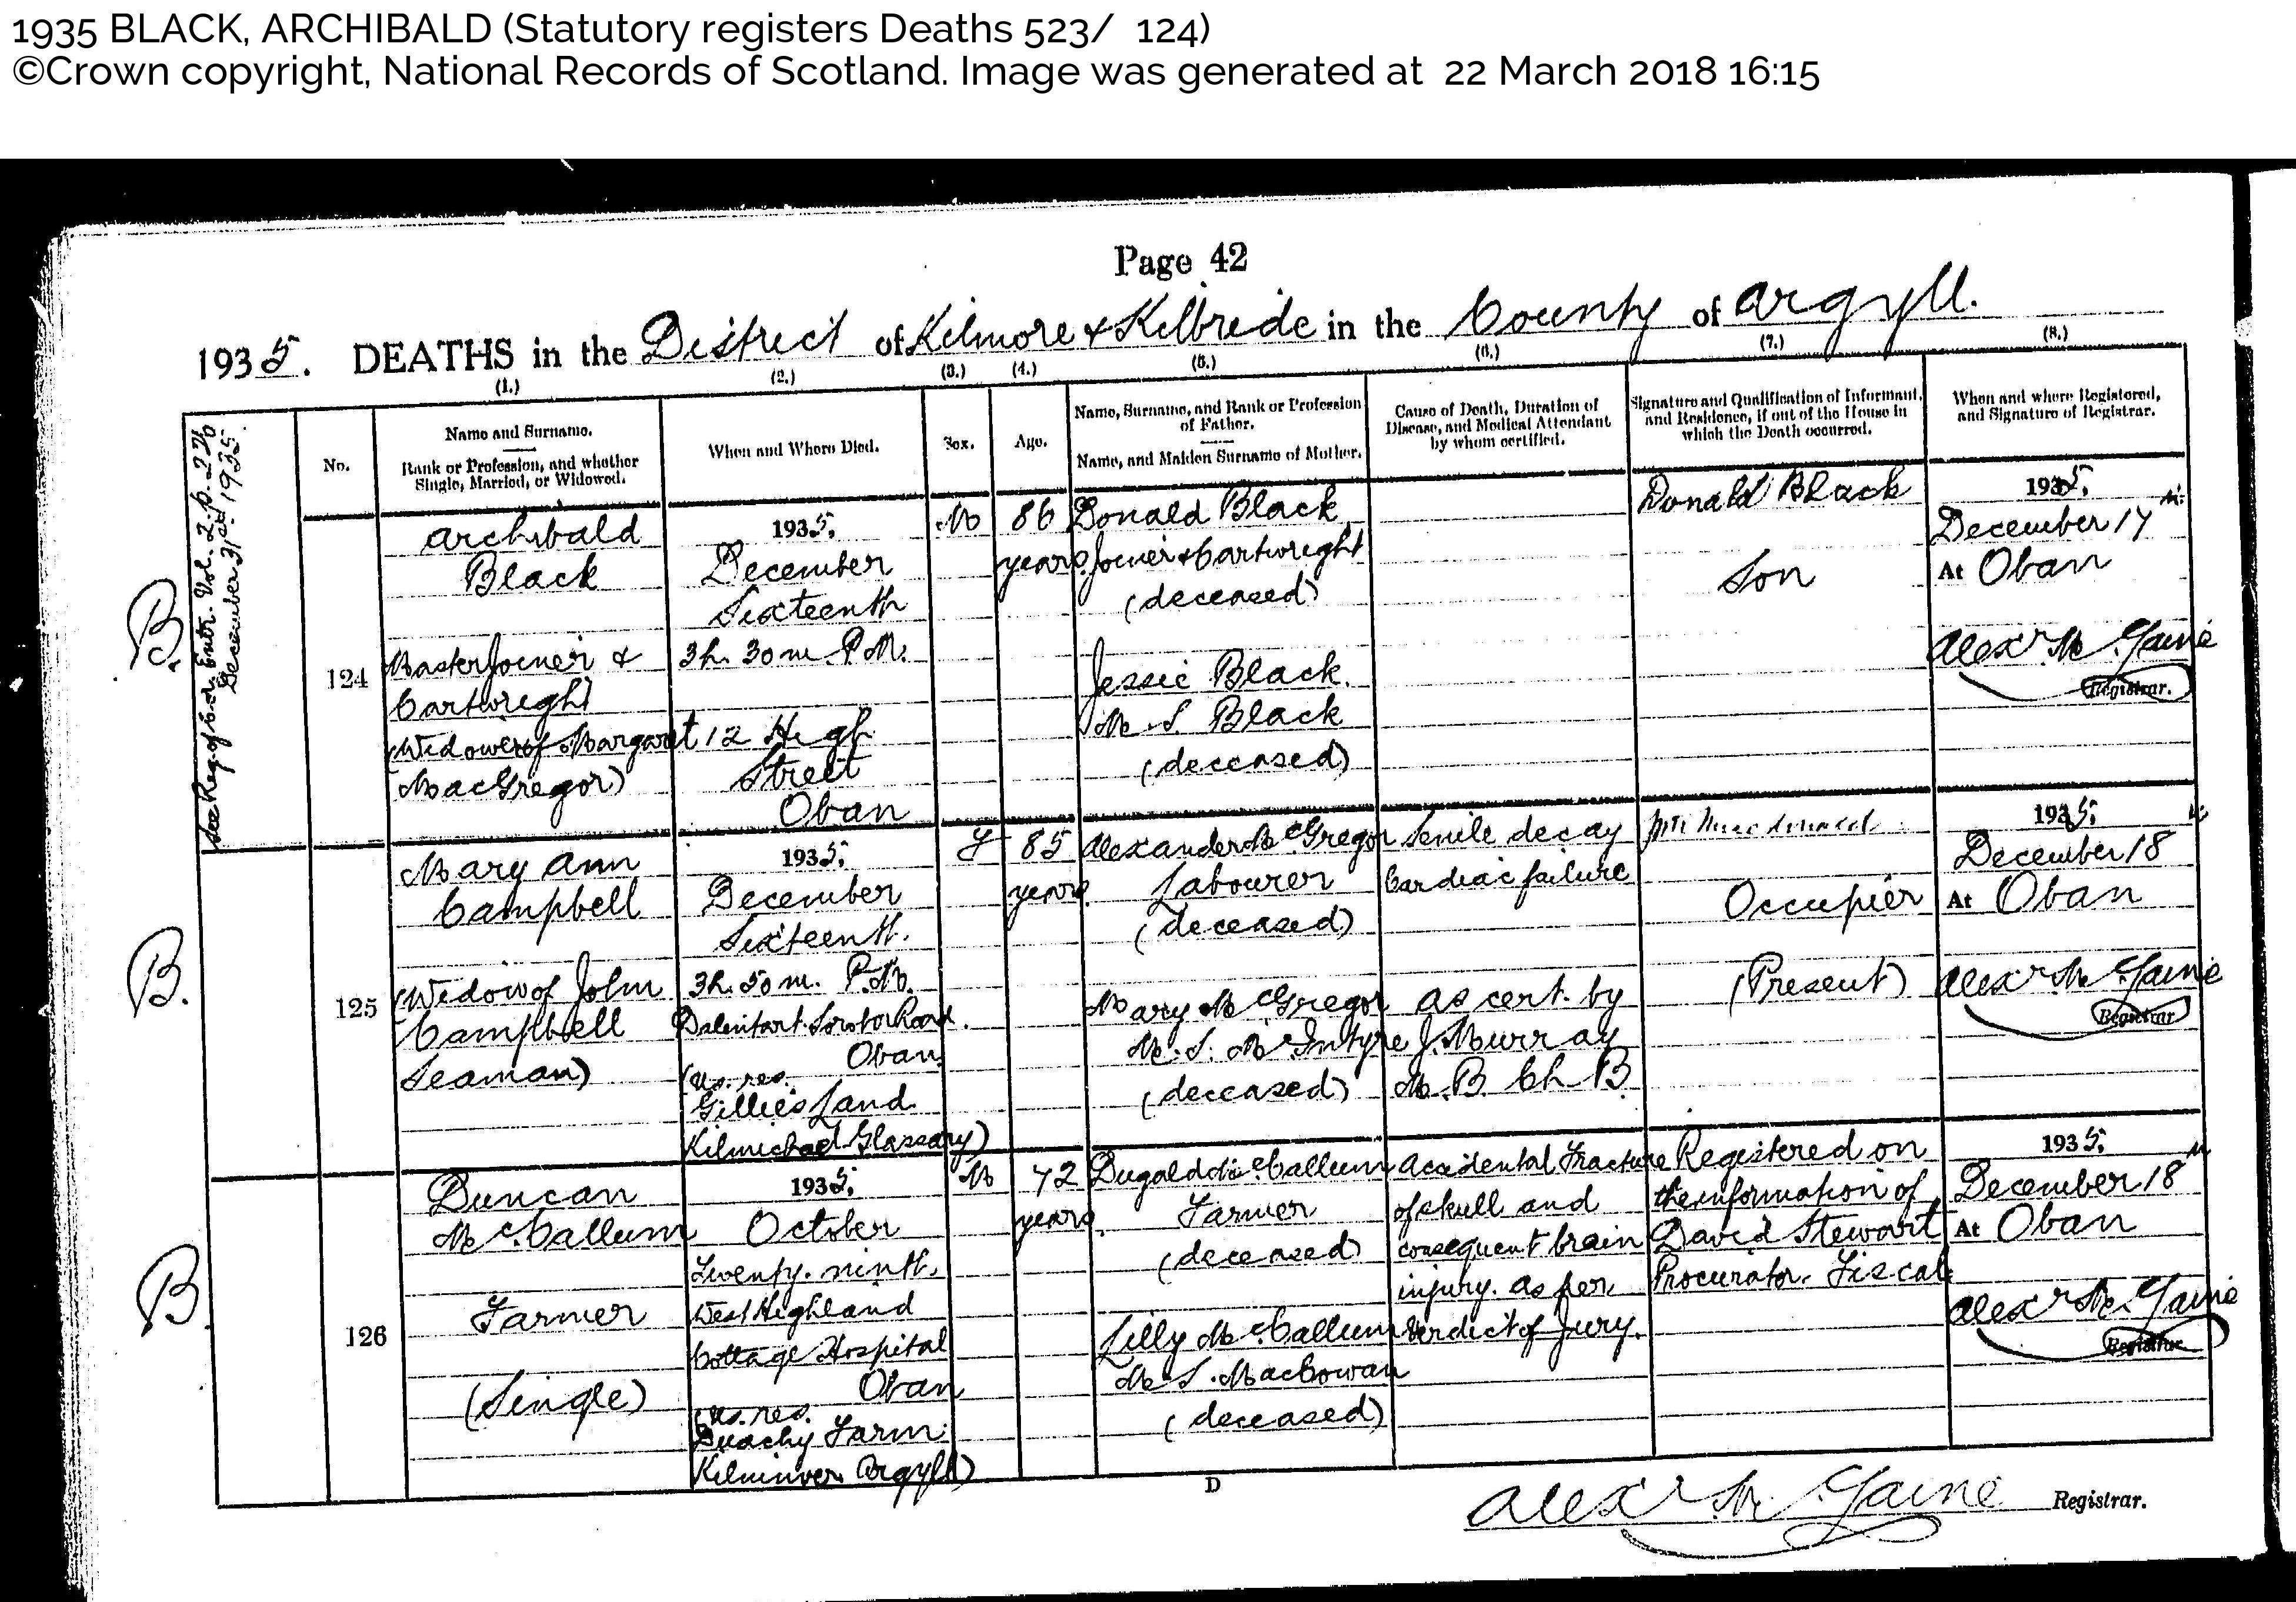 1935 BLACK, ARCHIBALD (Statutory registers Deaths 523/ 124)
©Crown copyright, National Records of Scotland. Image was generated at 22 March 2018 16:15
Page 42
1935. DEATHS in the District of Kilmore & Kilbride in the County of Argyll.
(1.) (2.) (3.) (4.) (5.) (6.) (7.) (8.)
No.
Name and Surname.
Rank or Profession, and whether
Single, Married, or Widowed.
When and Where Died.
Sex.
Age.
Name, Surname, and Rank or Profession
of Father.
Name, and Maiden Surname of Mother.
Cause of Death, Duration of
Disease, and Medical Attendant
by whom certified.
Signature and Qualification of Informant,
and Residence, if out of the House in
which the Death occurred.
When and where Registered,
and Signature of Registrar.
See Reg. of Cor. Entr. Vol. 2. p. 226
December 31st 1935.
B.
124
Archibald
Black
Master Joiner &
Cartwright
(Widower of Margaret
MacGregor)
1935,
December
Sixteenth
3h. 30m. P.M.
12 High
Street
Oban
M
86
years
Donald Black
Joiner & Cartwright
(deceased)
Jessie Black.
M.S. Black
(deceased)
Donald Black
Son
1935,
December 17
At Oban
Alexr. Mc.
Registrar.
B.
125
Mary Ann
Campbell
(Widow of John
Campbell
Seaman)
1935,
December
Sixteenth.
3h. 50m. P.M.
Dalintart Soroba Road.
Oban
(Us. res.
Gillies Land
Kilmichael Glassary)
F
85
years
Alexander McGregor
Labourer
(deceased)
Mary McGregor
M.S. McIntyre
(deceased)
Senile decay
Cardiac failure
As cert. by
J. Murray
M.B. Ch.B.
Macdonald
Occupier
(Present)
1935,
December 18
At Oban
Alexr. Mc.
Registrar
B.
126
Duncan
McCallum
Farmer
(Single)
1935,
October
Twenty-ninth.
West Highland
Cottage Hospital
Oban
(Us. res.
Duachy Farm
Kilninver Argyll)
M
72
years
Dugald McCallum
Farmer
(deceased)
Lilly McCallum
M.S. MacCowan
(deceased)
Accidental Fracture
of skull and
consequent brain
injury. As per
Verdict of Jury.
Registered on
the information of
David Stewart
Procurator-Fiscal
1935,
December 18
At Oban
Alexr. Mc.
Registrar
D
Alexr. Mc. Registrar.